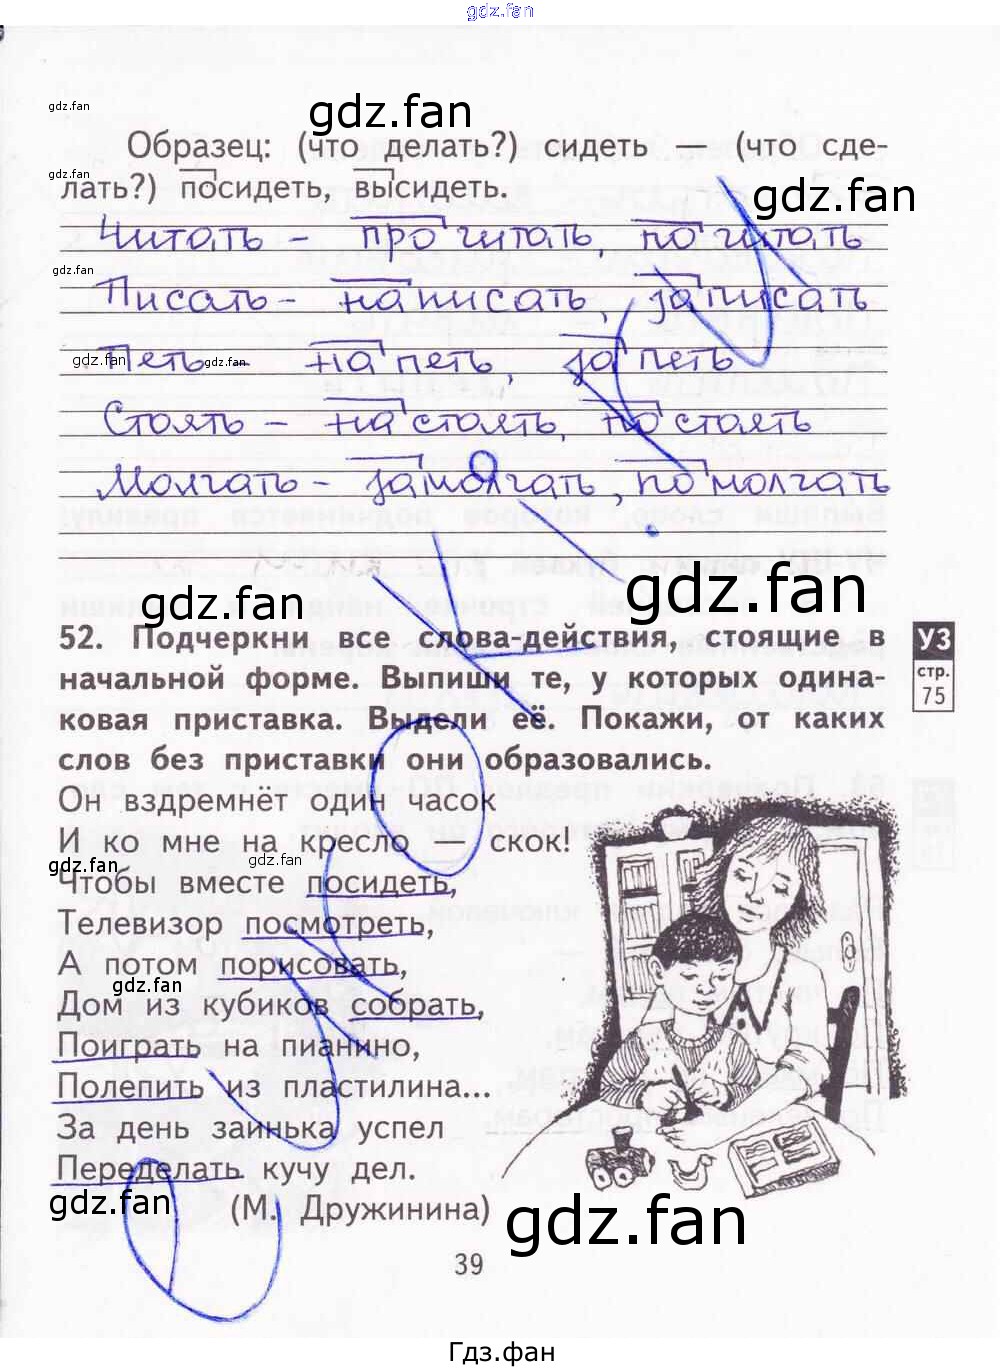 gdz.fan
gdz.fan
gdz.fan
Образец: (что делать?) сидеть — (что сде-
gdz.fan
лать?) посидеть, высидеть.
gdz.fan
Читать – прочитать, почитать
gdz.fan
Писать – написать, записать
gdz.fan
gdz.fan
Петь – напеть, запеть
Стоять – настоять, постоять
Молчать – замолчать, помолчать
gdz.fan
gdz.fan
52. Подчеркни все слова-действия, стоящие в
начальной форме. Выпиши те, у которых одина-
ковая приставка. Выдели её. Покажи, от каких
слов без приставки они образовались.
УЗ
стр.
75
Он вздремнёт один часок
И ко мне на кресло — скок!
gdz.fan
gdz.fan
Чтобы вместе посидеть,
Телевизор посмотреть,
А потом порисовать,
gdz.fan
Дом из кубиков собрать,
Поиграть на пианино,
Полепить из пластилина...
За день заинька успел
Переделать кучу дел.
gdz.fan
(М. Дружинина)
gdz.fan
39
Гдз.фан